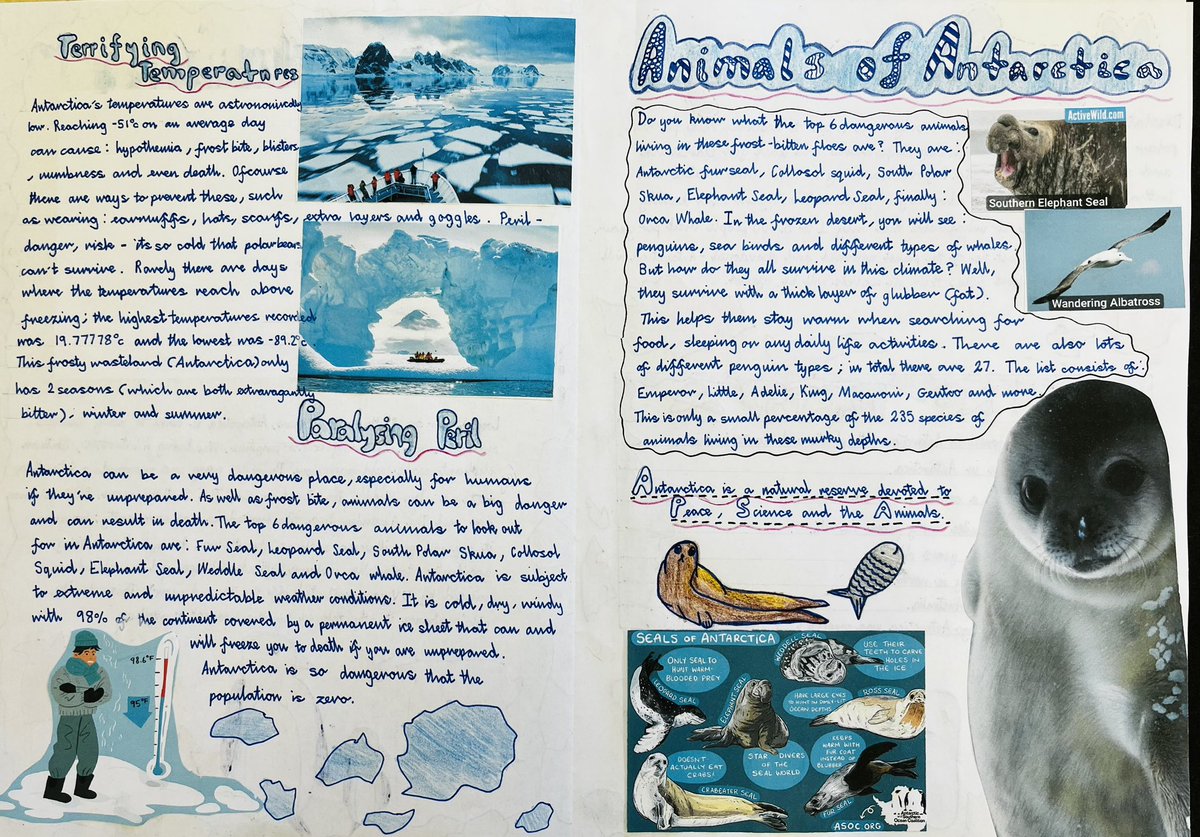 Terrifying
Temperatures
Antarctica's temperatures are astronomically
low. Reaching -51°c on an average day
can cause: hypothemia, frost bite, blisters
, numbness and even death. Ofcourse
there are ways to prevent these, such
as wearing: earmuffs, hats, scarfs, extra layers and goggles. Peril -
danger, risk - its so cold that polar bears
can't survive. Rarely there are days
where the temperatures reach above
freezing; the highest temperatures recorded
was 19.77778°c and the lowest was -89.2°c.
This frosty wasteland (Antarctica) only
has 2 seasons (which are both extravagantly
bitter) - winter and summer.
Paralysing Peril
Antarctica can be a very dangerous place, especially for humans
if they're unprepared. As well as frost bite, animals can be a big danger
and can result in death. The top 6 dangerous animals to look out
for in Antarctica are: Fur Seal, Leopard Seal, South Polar Skua, Collosol
Squid, Elephant Seal, Weddle Seal and Orca whale. Antarctica is subject
to extreme and unpredictable weather conditions. It is cold, dry, windy
with 98% of the continent covered by a permanent ice sheet that can and
will freeze you to death if you are unprepared.
Antarctica is so dangerous that the
population is zero.
98.6°F
95°F
Animals of Antarctica
Do you know what the top 6 dangerous animals
living in these frost-bitten floes are? They are:
Antarctic fur seal, Collosol squid, South Polar
Skua, Elephant Seal, Leopard Seal, finally:
Orca Whale. In the frozen desert, you will see:
penguins, sea birds and different types of whales.
But how do they all survive in this climate? Well,
they survive with a thick layer of glubber (fat).
This helps them stay warm when searching for
food, sleeping or any daily life activities. There are also lots
of different penguin types; in total there are 27. The list consists of:
Emperor, Little, Adelie, King, Macaroni, Gentoo and more.
This is only a small percentage of the 235 species of
animals living in these murky depths.
ActiveWild.com
Southern Elephant Seal
Wandering Albatross
Antarctica is a natural reserve devoted to
Peace, Science and the Animals.
SEALS OF ANTARCTICA
ONLY SEAL TO
HUNT WARM-
BLOODED PREY
LEOPARD SEAL
WEDDELL SEAL
USE THEIR
TEETH TO CARVE
HOLES IN
THE ICE
ELEPHANT SEAL
HAVE LARGE EYES
TO HUNT IN DIMLY-LIT
OCEAN DEPTHS
ROSS SEAL
DOESN'T
ACTUALLY EAT
CRABS!
STAR DIVERS
OF THE
SEAL WORLD
KEEPS
WARM WITH
FUR COAT
INSTEAD OF
BLUBBER
CRABEATER SEAL
FUR SEAL
ASOC.ORG
Antarctic
and Southern
Ocean Coalition